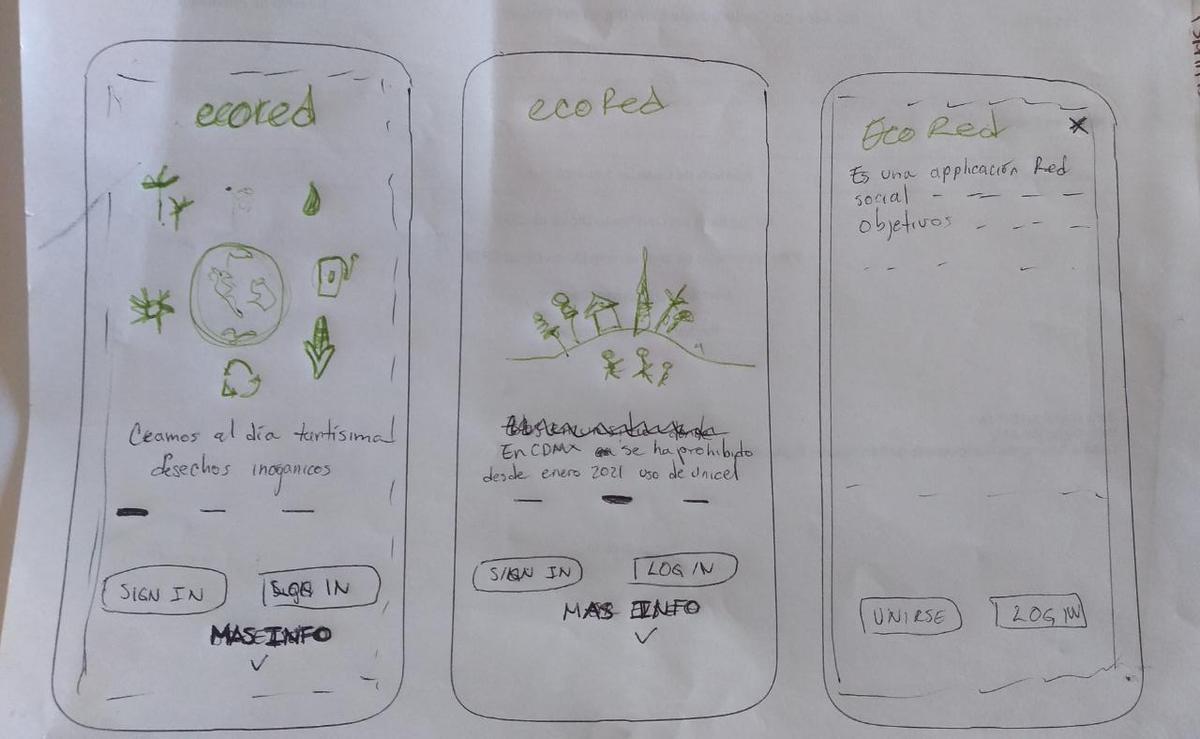 ecored
Creamos al día tantísimal
desechos inoganicos
SIGN IN
IN
MAS INFO
ecoRed
En CDMX se ha prohibido
desde enero 2021 uso de unicel
SIGN IN
LOG IN
MAS INFO
Eco Red
X
Es una applicación Red
social
objetivos
UNIRSE
LOG IN